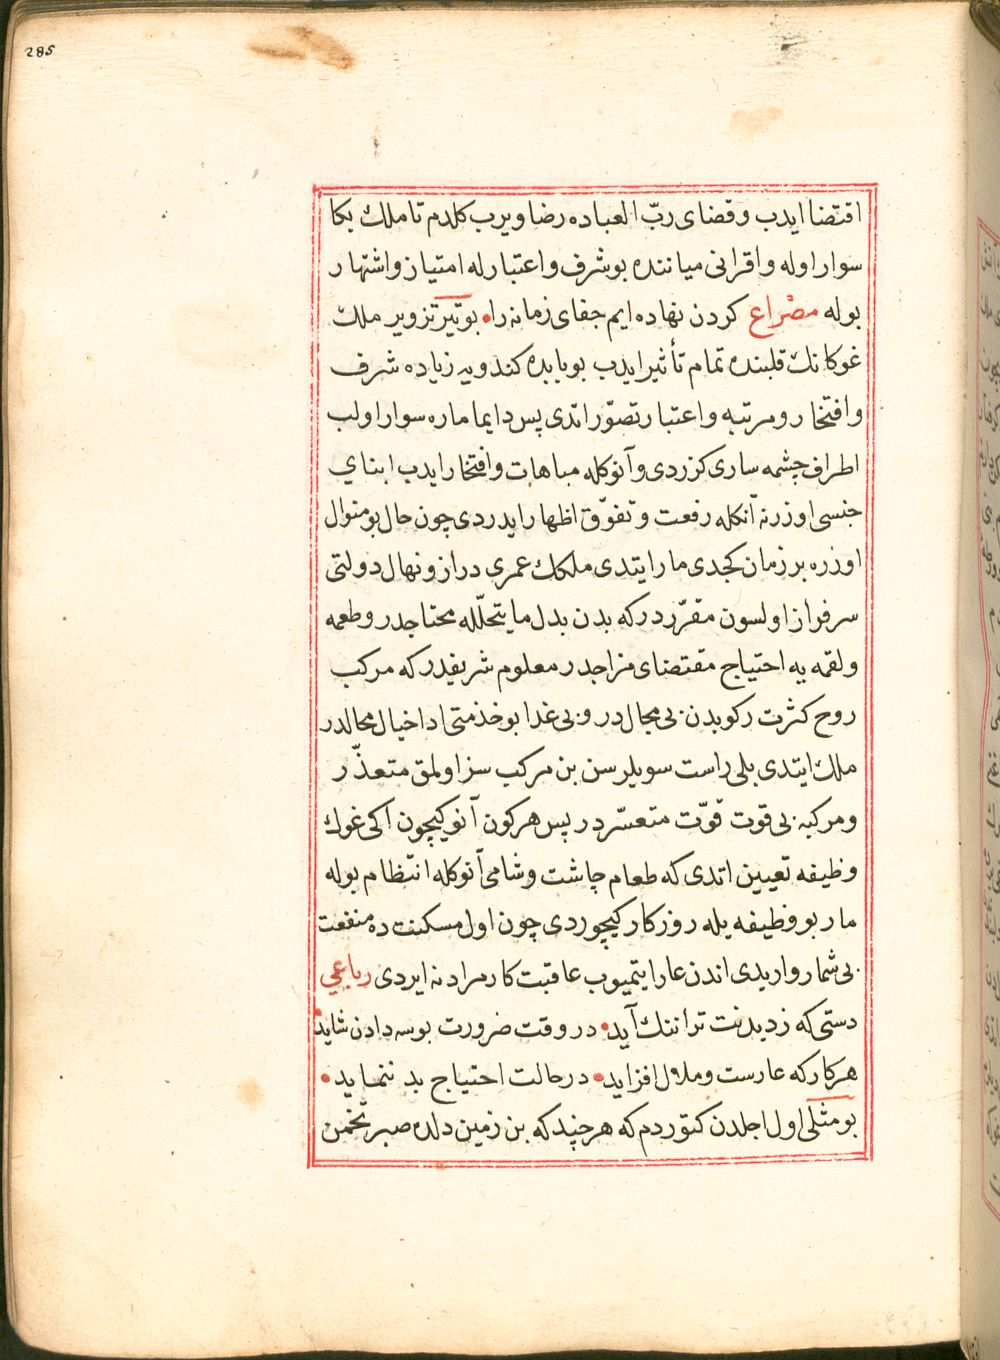 285
اقتضا ایدب و قضای ربّ العباده رضا ویرب کلدم تا ملك بکا
سوار اوله و اقرانی میاننده بو شرف و اعتبار له امتیاز و اشتهار
بوله مصْراع کردن نهاده ایم جفای زمانه را بو تیر تزویر ملك
غوکانك قلبنده تمام تأثیر ایدب بو بابده کندویه زیاده شرف
و افتخار و مرتبه و اعتبار تصوّر اتدی پس دایما ماره سوار اولب
اطراف چشمه ساری کزردی و آنوکله مباهات و افتخار ایدب ابنای
جنسی اوزرنه آنکله رفعت و تفوّق اظهار ایدردی چون حال بو منوال
اوزره بر زمان کجدی مار ایتدی ملکك عمری دراز و نهال دولتی
سرفراز اولسون مقرّردر که بدن بدل ما یتحلّله محتاجدر و طعمه
و لقمه یه احتیاج مقتضای مزاجدر معلوم شریفدر که مرکب
روح کثرت رکوبدن بی مجالدر و بی غدا بو خذمتی ادا خیال محالدر
ملك ایتدی بلی راست سویلرسن بن مرکب سز اولمق متعذّر
و مرکبه بی قوت قوّت متعسّردر پس هر کون آنو کیچون اکی غوك
وظیفه تعیین اتدی که طعام چاشت و شامی آنوکله انتظام بوله
مار بو وظیفه یله روزکار کیچوردی چون اول مسکنت ده منفعت
بی شمار واریدی اندن عار ایتمیوب عاقبت کار مرادنه ایردی رباعی
دستی که زدیدنت ترا ننك آید در وقت ضرورت بوسه دادن شاید
هر کار که عارست و ملال افزاید در حالت احتیاج بد ننماید
بو مثلی اول اجلدن کتوردم که هر چند که بن زمین دلده صبر تخمن